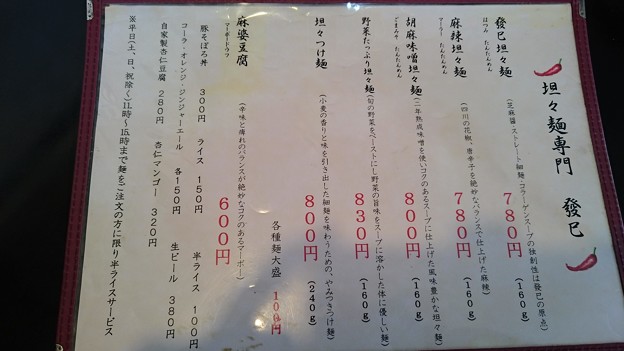 坦々麺専門 發巳
發巳坦々麺
はつみ たんたんめん
780円
(160g)
(芝麻醤・ストレート細麺、コラーゲンスープの独創性は發巳の原点)
麻辣坦々麺
マーラー たんたんめん
780円
(160g)
(四川の花椒、唐辛子を絶妙なバランスで仕上げた麻辣)
胡麻味噌坦々麺
ごまみそ たんたんめん
800円
(160g)
(二年熟成味噌を使いコクのあるスープに仕上げた風味豊かな坦々麺)
野菜たっぷり坦々麺
830円
(160g)
(旬の野菜をペーストにし野菜の旨味をスープに溶かした体に優しい麺)
坦々つけ麺
800円
(240g)
(小麦の香りと味を引き出した細麺を味わうための、やみつきつけ麺)
各種麺大盛 100円
麻婆豆腐
マーボードウフ
600円
(辛味と痺れのバランスが絶妙なコクのあるマーボー)
豚そぼろ丼 300円 ライス 150円 半ライス 100円
コーラ・オレンジ・ジンジャーエール 各150円 生ビール 380円
自家製杏仁豆腐 280円 杏仁マンゴー 320円
※平日(土、日、祝除く)11時～15時まで麺をご注文の方に限り半ライスサービス